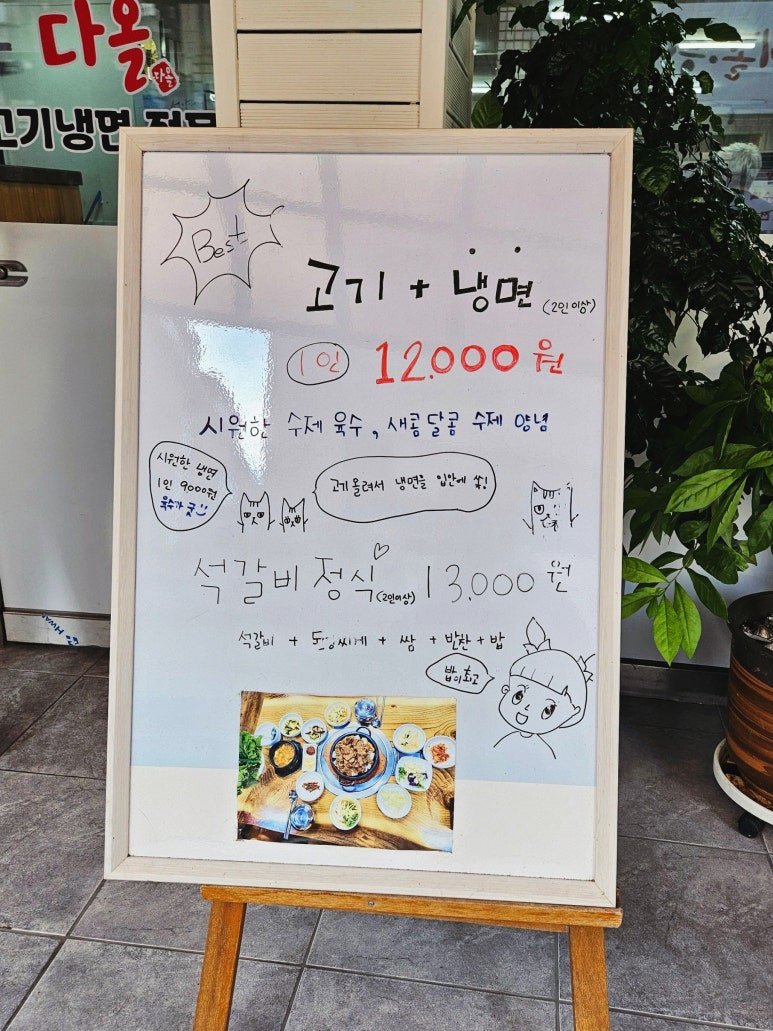 다올
다올
고기냉면 전문
Best
고기 + 냉면 (2인이상)
1인 12.000원
시원한 수제 육수, 새콤달콤 수제 양념
시원한 냉면
1인 9000원
육수가 굿
고기올려서 냉면을 입안에 쏙!
석갈비 정식 (2인이상) 13,000원
석갈비 + 된장찌게 + 쌈 + 반찬 + 밥
밥이최고